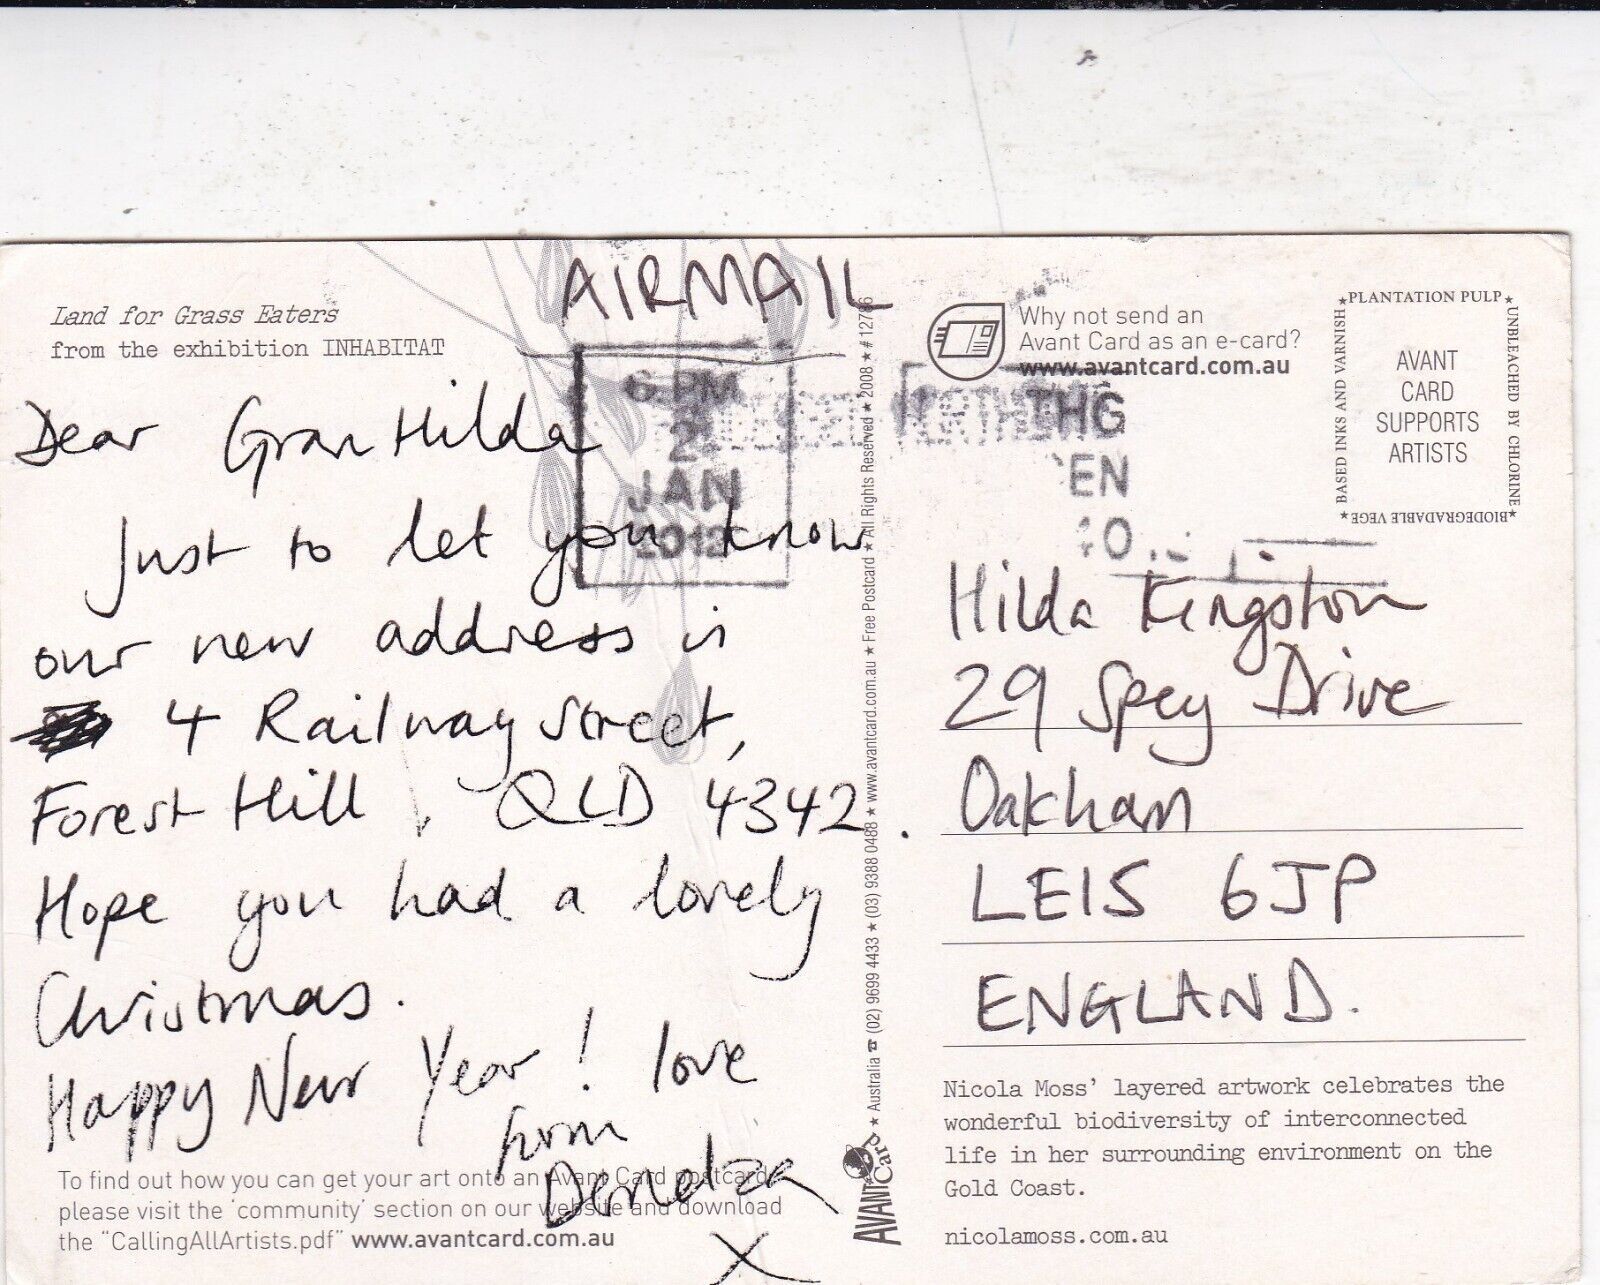 Land for Grass Eaters
from the exhibition INHABITAT
AIRMAIL
6 PM
2
JAN
2012
Dear Gran Hilda
Just to let you know
our new address is
4 Railway Street,
Forest Hill, QLD 4342.
Hope you had a lovely
Christmas.
Happy New Year! love
from
X
To find out how you can get your art onto an Avant Card postcard
please visit the 'community' section on our website and download
the "CallingAllArtists.pdf" www.avantcard.com.au
★ Australia ☎ (02) 9699 4433 ★ (03) 9388 0488 ★ www.avantcard.com.au ★ Free Postcard ★ All Rights Reserved ★ 2008 ★ # 12786
AVANT Card
Why not send an
Avant Card as an e-card?
www.avantcard.com.au
THG
EN
★PLANTATION PULP★
UNBLEACHED BY CHLORINE
★BIODEGRADABLE VEGE★
BASED INKS AND VARNISH
AVANT
CARD
SUPPORTS
ARTISTS
Hilda Kingston
29 Spey Drive
Oakham
LE15 6JP
ENGLAND.
Nicola Moss' layered artwork celebrates the
wonderful biodiversity of interconnected
life in her surrounding environment on the
Gold Coast.
nicolamoss.com.au